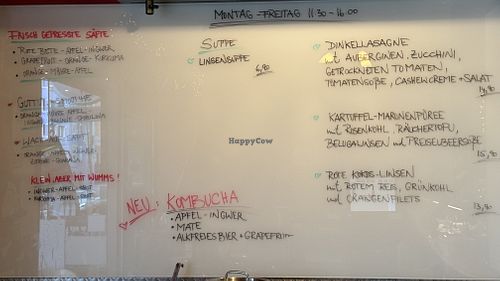 MONTAG - FREITAG 11.30 - 16.00
FRISCH GEPRESSTE SÄFTE
• ROTE BETE - APFEL - INGWER
• GRAPEFRUIT - ORANGE - KURKUMA
• ORANGE - MÖHRE - APFEL
KLEIN, ABER MIT WUMMS!
• INGWER - APFEL - SHOT
• KURKUMA - APFEL - SHOT
SUPPE
LINSENSUPPE
6,90
NEU: KOMBUCHA
• APFEL - INGWER
• MATE
• ALKFREIES BIER + GRAPEFRUIT
DINKELLASAGNE
mit AUBERGINEN, ZUCCHINI,
GETROCKNETEN TOMATEN,
TOMATENSOßE, CASHEWCREME + SALAT
14,90
KARTOFFEL-MARONENPÜREE
mit ROSENKOHL, RÄUCHERTOFU,
BELUGALINSEN und PREISELBEERSOßE
15,90
ROTE KOKOS-LINSEN
mit ROTEM REIS, GRÜNKOHL
und ORANGENFILETS
13,90
HappyCow